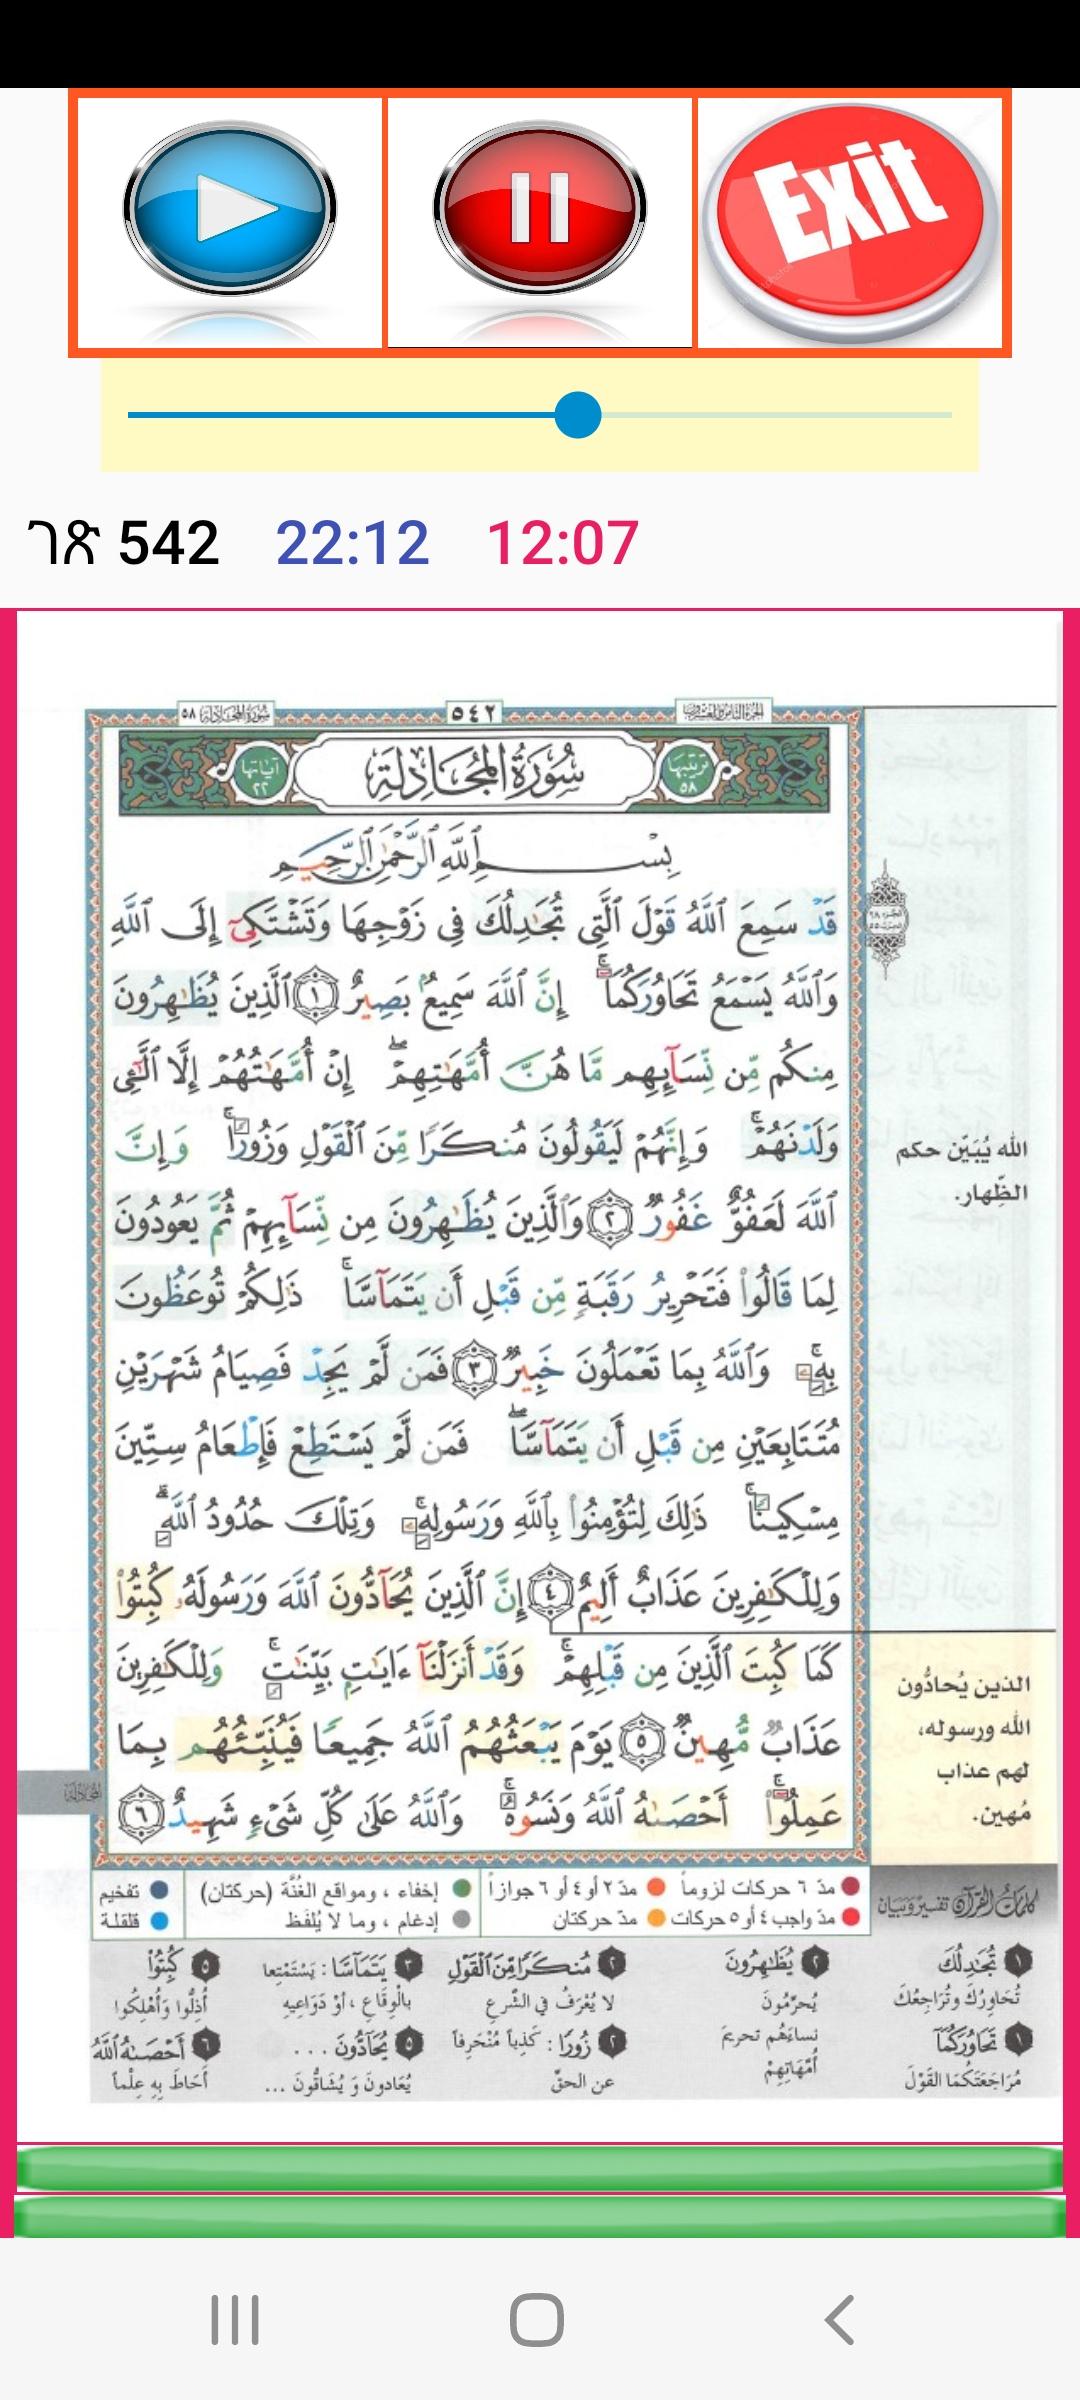 Exit
ገጽ 542 22:12 12:07
سُورَةُ المُجَادلة ٥٨
٥٤٢
الجزء الثامن والعشرون
آياتها ٢٢
سُورَةُ المُجَادِلَةِ
ترتيبها ٥٨
بِسْمِ ٱللَّهِ ٱلرَّحْمَٰنِ ٱلرَّحِيمِ
قَدْ سَمِعَ ٱللَّهُ قَوْلَ ٱلَّتِى تُجَٰدِلُكَ فِى زَوْجِهَا وَتَشْتَكِىٓ إِلَى ٱللَّهِ
وَٱللَّهُ يَسْمَعُ تَحَاوُرَكُمَآ ۚ إِنَّ ٱللَّهَ سَمِيعٌۢ بَصِيرٌ ١ ٱلَّذِينَ يُظَٰهِرُونَ
مِنكُم مِّن نِّسَآئِهِم مَّا هُنَّ أُمَّهَٰتِهِمْ ۖ إِنْ أُمَّهَٰتُهُمْ إِلَّا ٱلَّٰٓـِٔى
وَلَدْنَهُمْ ۚ وَإِنَّهُمْ لَيَقُولُونَ مُنكَرًا مِّنَ ٱلْقَوْلِ وَزُورًا ۚ وَإِنَّ
ٱللَّهَ لَعَفُوٌّ غَفُورٌ ٢ وَٱلَّذِينَ يُظَٰهِرُونَ مِن نِّسَآئِهِمْ ثُمَّ يَعُودُونَ
لِمَا قَالُوا۟ فَتَحْرِيرُ رَقَبَةٍ مِّن قَبْلِ أَن يَتَمَآسَّا ۚ ذَٰلِكُمْ تُوعَظُونَ
بِهِۦ ۚ وَٱللَّهُ بِمَا تَعْمَلُونَ خَبِيرٌ ٣ فَمَن لَّمْ يَجِدْ فَصِيَامُ شَهْرَيْنِ
مُتَتَابِعَيْنِ مِن قَبْلِ أَن يَتَمَآسَّا ۖ فَمَن لَّمْ يَسْتَطِعْ فَإِطْعَامُ سِتِّينَ
مِسْكِينًا ۚ ذَٰلِكَ لِتُؤْمِنُوا۟ بِٱللَّهِ وَرَسُولِهِۦ ۚ وَتِلْكَ حُدُودُ ٱللَّهِ ۗ
وَلِلْكَٰفِرِينَ عَذَابٌ أَلِيمٌ ٤ إِنَّ ٱلَّذِينَ يُحَآدُّونَ ٱللَّهَ وَرَسُولَهُۥ كُبِتُوا۟
كَمَا كُبِتَ ٱلَّذِينَ مِن قَبْلِهِمْ ۚ وَقَدْ أَنزَلْنَآ ءَايَٰتٍۭ بَيِّنَٰتٍ ۚ وَلِلْكَٰفِرِينَ
عَذَابٌ مُّهِينٌ ٥ يَوْمَ يَبْعَثُهُمُ ٱللَّهُ جَمِيعًا فَيُنَبِّئُهُم بِمَا
عَمِلُوٓا۟ ۚ أَحْصَىٰهُ ٱللَّهُ وَنَسُوهُ ۚ وَٱللَّهُ عَلَىٰ كُلِّ شَىْءٍ شَهِيدٌ ٦
الله يُبَيّن حكم
الظِّهار.
الذين يُحادُّون
الله ورسوله،
لهم عذاب
مُهين.
المجادلة
مدّ ٦ حركات لزوماً مدّ ٢ أو ٤ أو ٦ جوازاً إخفاء ، ومواقع الغُنَّة (حركتان) تفخيم
مدّ واجب ٤ أو ٥ حركات مدّ حركتان إدغام ، وما لا يُلفَظ قلقلة
كلمات القرآن تفسير وبيان
١ تُجَٰدِلُكَ
تُحَاوِرُكَ وتُرَاجِعُكَ
١ تَحَاوُرَكُمَآ
مُرَاجَعَتَكُمَا القَوْلَ
٢ يُظَٰهِرُونَ
يُحرِّمُونَ
نساءَهُم تحريمَ
أُمَّهَاتِهِمْ
٢ مُنكَرًا مِّنَ ٱلْقَوْلِ
لا يُعْرَفُ في الشَّرعِ
٢ زُورًا : كَذِباً مُنْحَرِفاً
عن الحقِّ
٣ يَتَمَآسَّا : يَسْتَمْتِعا
بالْوِقَاعِ ، أوْ دَوَاعِيهِ
٥ يُحَآدُّونَ ...
يُعَادونَ وَ يُشَاقُّونَ ...
٥ كُبِتُوا۟
أُذِلُّوا وَأُهْلِكُوا
٦ أَحْصَىٰهُ ٱللَّهُ
أحَاطَ بِهِ عِلْماً